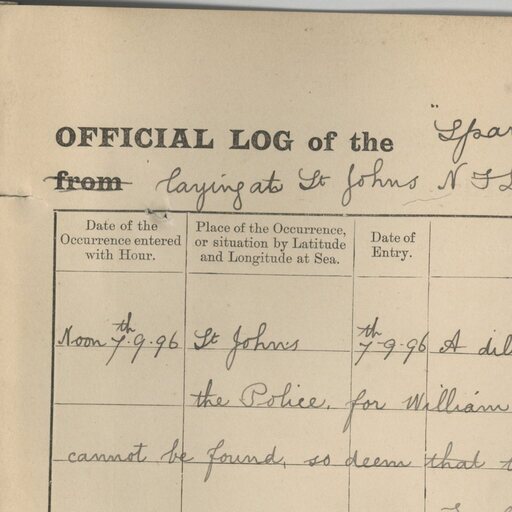 OFFICIAL LOG of the "Spar
from laying at St Johns N F L
Date of the Occurrence entered with Hour.
Place of the Occurrence, or situation by Latitude and Longitude at Sea.
Date of Entry.
Noon 7th.9.96 St John's 7th-9-96 A dil
the Police, for William
cannot be found, so deem that t